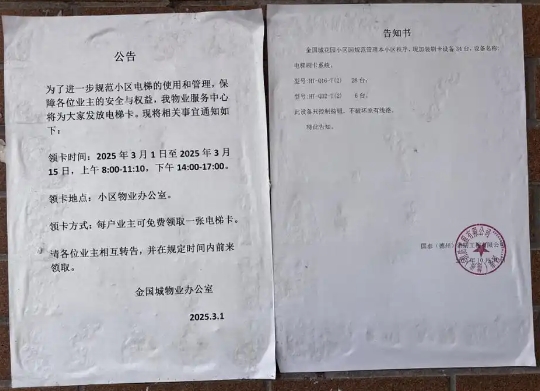 公告
为了进一步规范小区电梯的使用和管理，保
障各位业主的安全与权益，我物业服务中心
将为大家发放电梯卡。现将相关事宜通知如
下：
领卡时间：2025年3月1日至2025年3月
15日，上午8:00-11:10，下午14:00-17:00。
领卡地点：小区物业办公室。
领卡方式：每户业主可免费领取一张电梯卡。
请各位业主相互转告，并在规定时间内前来
领取。
金国城物业办公室
2025.3.1
告知书
金国城花园小区因规范管理本小区秩序，现加装刷卡设备34台，设备名称：
电梯刷卡系统。
台。
6台。
此设备只控制按钮，不破坏原有线路。
特此告知。